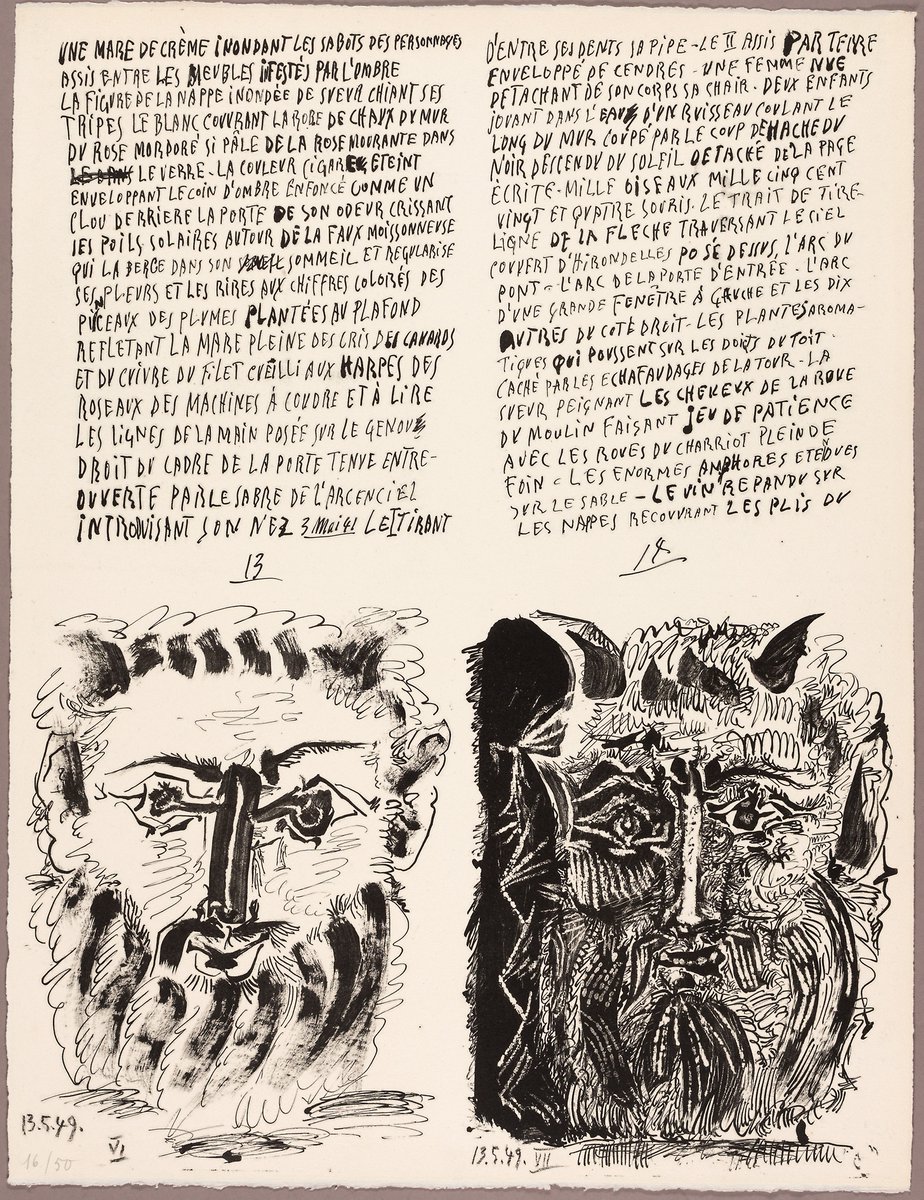 UNE MARE DE CRÈME INONDANT LES SABOTS DES PERSONNAGES
ASSIS ENTRE LES MEUBLES IFESTÉS PAR L'OMBRE
LA FIGURE DE LA NAPPE INONDÉE DE SUEUR CHIANT SES
TRIPES LE BLANC COUVRANT LA ROBE DE CHAUX DU MUR
DU ROSE MORDORÉ SI PÂLE DE LA ROSE MOURANTE DANS
LE VERRE - LA COULEUR CIGARE ETEINT
ENVELOPPANT LE COIN D'OMBRE ENFONCÉ COMME UN
CLOU DERRIERE LA PORTE DE SON ODEUR CRISSANT
SES POILS SOLAIRES AUTOUR DE LA FAUX MOISSONNEUSE
QUI LA BERCE DANS SON SOMMEIL ET REGULARISE
SES PLEURS ET LES RIRES AUX CHIFFRES COLORÉS DES
PUCEAUX DES PLUMES PLANTÉES AU PLAFOND
REFLETANT LA MARE PLEINE DES CRIS DES CANARDS
ET DU CUIVRE DU FILET CUEILLI AUX HARPES DES
ROSEAUX DES MACHINES À COUDRE ET À LIRE
LES LIGNES DE LA MAIN POSÉE SUR LE GENOU
DROIT DU CADRE DE LA PORTE TENUE ENTRE-
OUVERTE PAR LE SABRE DE L'ARC EN CIEL
INTRODUISANT SON NEZ 3 Mai 41 LE I TIRANT
13
D'ENTRE SES DENTS SA PIPE - LE II ASSIS PAR TERRE
ENVELOPPÉ DE CENDRES - UNE FEMME NUE
DETACHANT DE SON CORPS SA CHAIR. DEUX ENFANTS
JOUANT DANS L'EAU D'UN RUISSEAU COULANT LE
LONG DU MUR COUPÉ PAR LE COUP DE HACHE DU
NOIR DESCENDU DU SOLEIL DETACHÉ DE LA PAGE
ÉCRITE - MILLE OISEAUX MILLE CINQ CENT
VINGT ET QUATRE SOURIS. LE TRAIT DE TIRE-
LIGNE DE LA FLECHE TRAVERSANT LE CIEL
COUVERT D'HIRONDELLES POSÉ DESSUS, L'ARC DU
PONT - L'ARC DE LA PORTE D'ENTRÉE - L'ARC
D'UNE GRANDE FENÊTRE À GAUCHE ET LES DIX
AUTRES DU COTÉ DROIT - LES PLANTES AROMA-
TIQUES QUI POUSSENT SUR LES DOIGTS DU TOIT.
CACHÉ PAR LES ECHAFAUDAGES DE LA TOUR - LA
SUEUR PEIGNANT LES CHEVEUX DE LA ROUE
DU MOULIN FAISANT JEU DE PATIENCE
AVEC LES ROUES DU CHARRIOT PLEIN DE
FOIN - LES ENORMES AMPHORES ETENDUES
SUR LE SABLE - LE VIN REPANDU SUR
LES NAPPES RECOUVRANT LES PLIS DU
14
13.5.49.
VI
16/50
13.5.49. VII